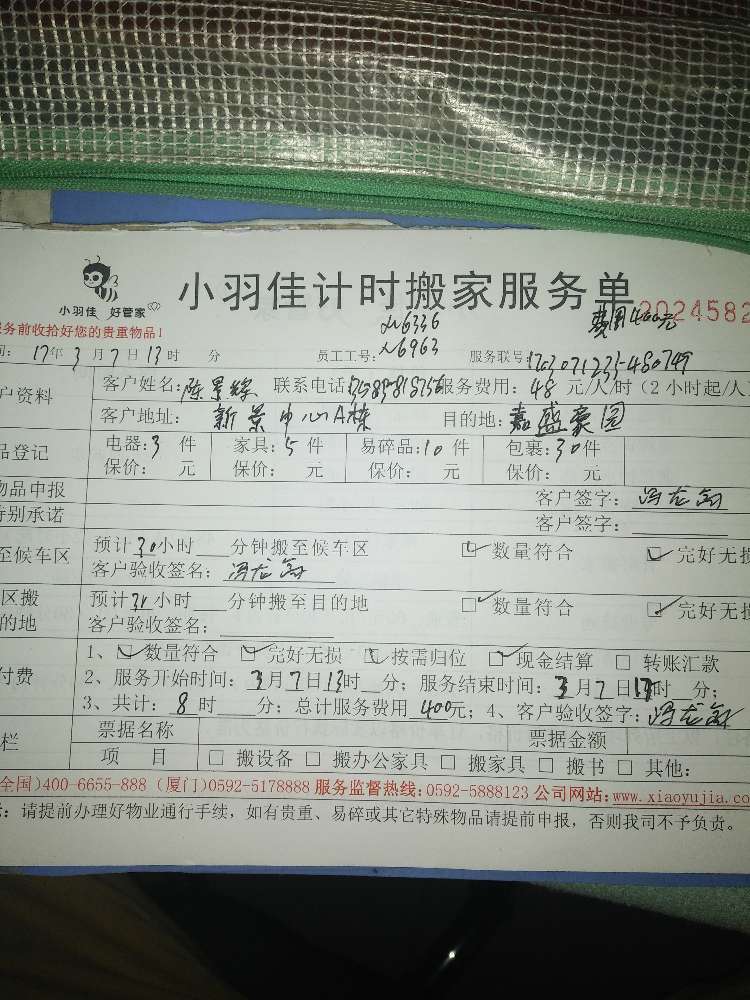 小羽佳 好管家
小羽佳计时搬家服务单 2024582
费用400元
务前收拾好您的贵重物品!
N6336
间: 17年3月7日13时 分 员工工号: N6963 服务联号:
户资料 客户姓名: 陈景辉 联系电话: 服务费用: 48 元/人/时(2小时起/人
客户地址: 新景中心A栋 目的地: 嘉盛豪园
品登记 电器:3 件 家具:5 件 易碎品:10 件 包裹:30件
保价: 元 保价: 元 保价: 元 保价: 元
物品申报 客户签字:
特别承诺 客户签字:
至候车区 预计 小时 分钟搬至候车区 数量符合 完好无损
客户验收签名:
区搬 预计 小时 分钟搬至目的地 数量符合 完好无损
的地 客户验收签名:
付费 1、 数量符合 完好无损 按需归位 现金结算 转账汇款
2、服务开始时间: 3月7日13时 分; 服务结束时间: 3月7日17时 分;
3、共计: 8 时 分; 总计服务费用 400元; 4、客户验收签字:
栏 票据名称 票据金额
项 目 搬设备 搬办公家具 搬家具 搬书 其他:
全国)400-6655-888 (厦门)0592-5178888 服务监督热线:0592-5888123 公司网站:www.xiaoyujia.co
: 请提前办理好物业通行手续, 如有贵重、易碎或其它特殊物品请提前申报, 否则我司不予负责。